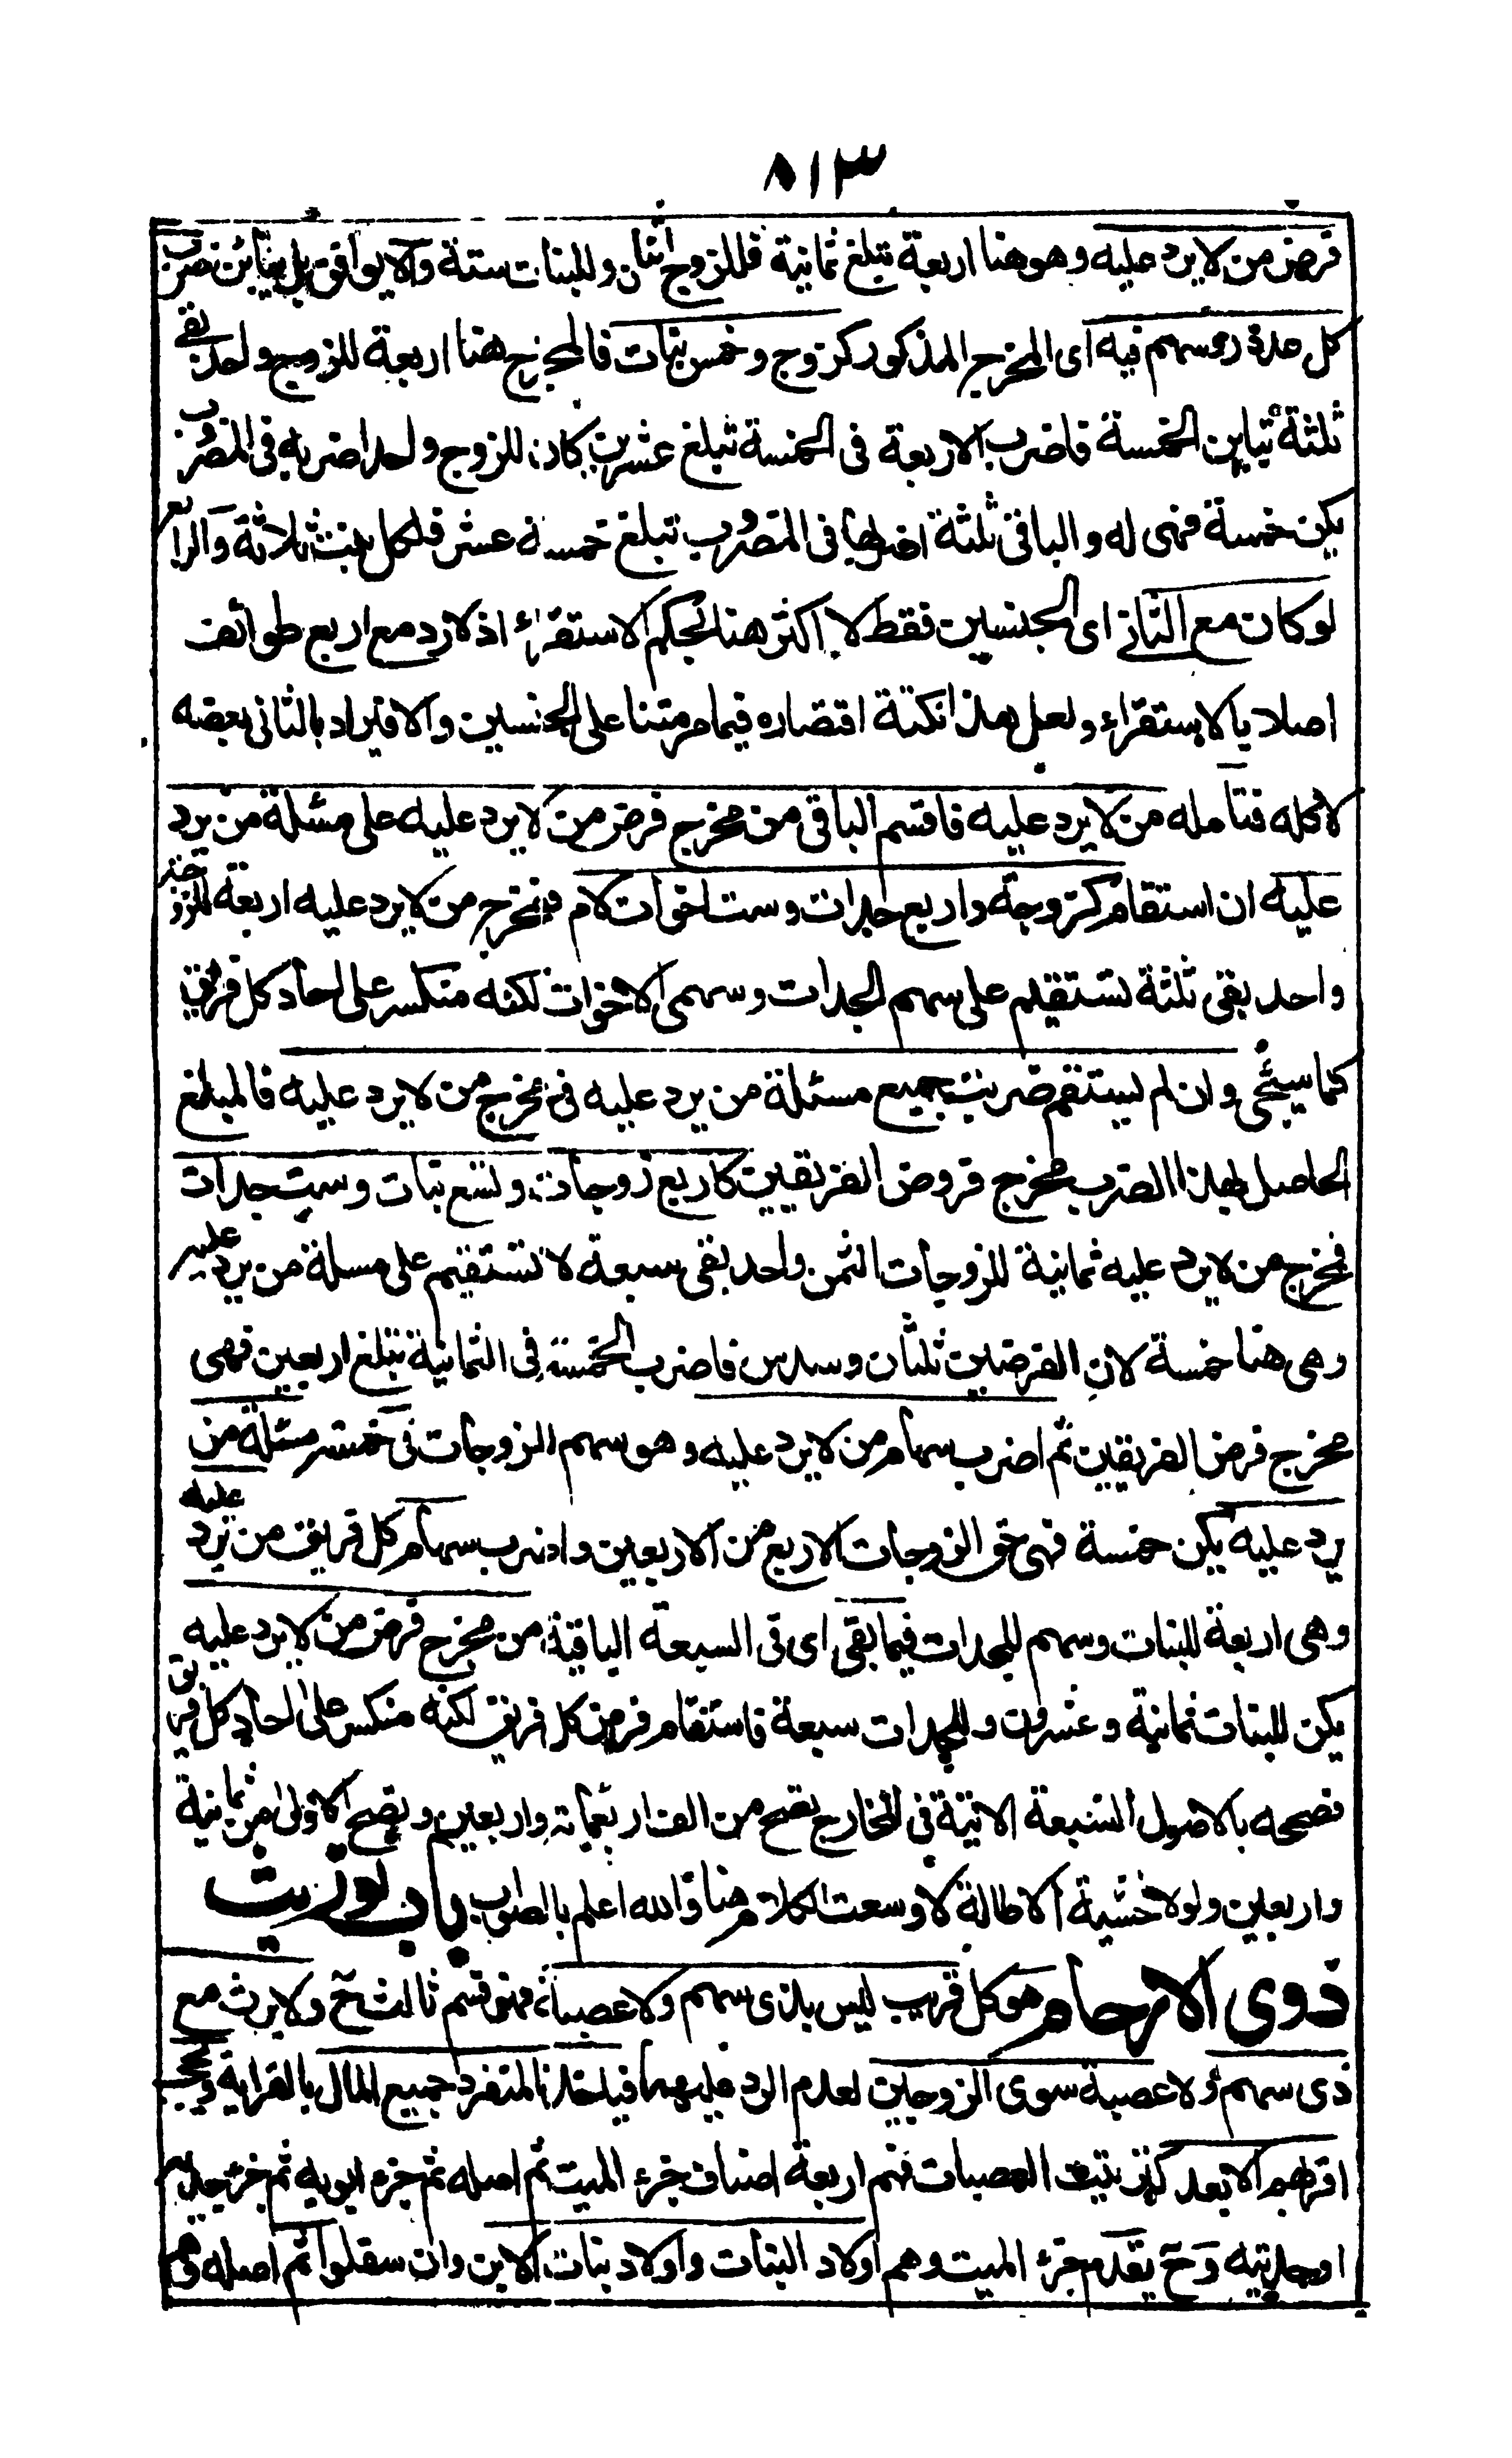 ٨١٣
فرض من لا يرد عليه وهو هنا اربعة تبلغ ثمانية فللزوج اثنان وللبنات ستة والا يوافق بل يباين ضرب
كل عدد رؤسهم فيه اى المخرج المذكور كزوج وخمس بنات فالمخرج هنا اربعة للزوج واحد بقى
ثلثة تباين الخمسة فاضرب الاربعة فى الخمسة تبلغ عشرين كان للزوج واحد اضربه فى المضروب
يكن خمسة فهى له والباقى ثلثة اضربها فى المضروب تبلغ خمسة عشر فلكل بنت ثلاثة والرابع
لو كان مع الثانى اى الجنسين فقط لا اكثر هنا لحكم الاستقراء اذ لا رد مع اربع طوائف
اصلا بالاستقراء ولعل هذا نكتة اقتصاره فيما مر متنا على الجنسين والا فيراد بالثانى بعضه
لا كله فتامله من لا يرد عليه فاقسم الباقى من مخرج فرض من لا يرد عليه على مسئلة من يرد
عليه ان استقام كزوجة واربع جدات وست اخوات لام فمخرج من لا يرد عليه اربعة للزوجة
واحد بقى ثلثة تستقيم على سهم الجدات وسهمى الاخوات لكنه منكسر على احاد كل فريق
كما سيجئ وان لم يستقم ضربت جميع مسئلة من يرد عليه فى مخرج من لا يرد عليه فالمبلغ
الحاصل بهذا الضرب مخرج فروض الفريقين كاربع زوجات وتسع بنات وست جدات
فمخرج من لا يرد عليه ثمانية للزوجات الثمن واحد بقى سبعة لا تستقيم على مسلة من يرد عليه
وهى هنا خمسة لان الفرضين ثلثان وسدس فاضرب الخمسة فى الثمانية تبلغ اربعين فهى
مخرج فرض الفريقين ثم اضرب سهام من لا يرد عليه وهو سهم الزوجات فى خمسة مسئلة من
يرد عليه يكن خمسة فهى حق الزوجات الاربع من الاربعين واضرب سهام كل فريق من يرد عليه
وهى اربعة للبنات وسهم للجدات فيما بقى اى فى السبعة الباقية من مخرج فرض من لا يرد عليه
يكن للبنات ثمانية وعشرون وللجدات سبعة فاستقام فرض كل فريق لكنه منكسر على احاد كل فريق
فصححه بالاصول السبعة الاتية فى المخارج تصح من الف اربعمائة واربعين وتصح الاولى من ثمانية
واربعين ولولا خشية الاطالة لاوسعت الكلام هنا والله اعلم بالصواب باب توريث
ذوى الارحام هو كل قريب ليس بذى سهم ولا عصبة فهو قسم ثالث ح ولا يرث مع
ذى سهم ولا عصبة سوى الزوجين لعدم الرد عليهما فياخذ المنفرد جميع المال بالقرابة ويحجب
اقربهم الابعد كترتيب العصبات فهم اربعة اصناف جزء الميت ثم اصله ثم جزء ابويه ثم جزء جديه
او جدتيه وح يقدم جزء الميت وهم اولاد البنات واولاد بنات الابن وان سفلوا ثم اصله وهم